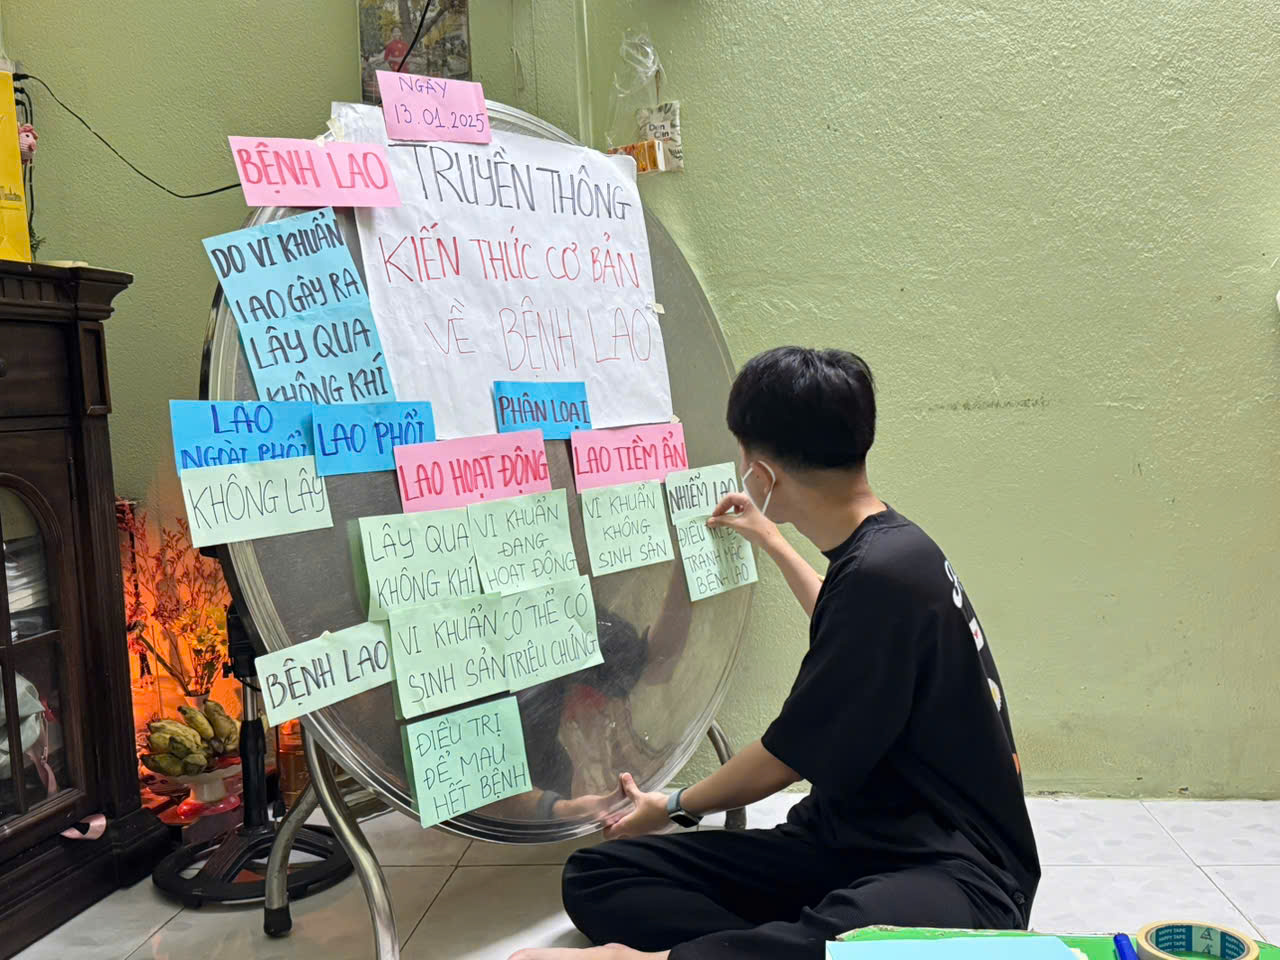 NGÀY
13.01.2025
BỆNH LAO
TRUYỀN THÔNG
KIẾN THỨC CƠ BẢN
VỀ BỆNH LAO
DO VI KHUẨN
LAO GÂY RA
LÂY QUA
KHÔNG KHÍ
PHÂN LOẠI
LAO
NGOÀI PHỔI
LAO PHỔI
KHÔNG LÂY
LAO HOẠT ĐỘNG
LAO TIỀM ẨN
LÂY QUA
KHÔNG KHÍ
VI KHUẨN
ĐANG
HOẠT ĐỘNG
VI KHUẨN
KHÔNG
SINH SẢN
NHIỄM LAO
ĐIỀU TRỊ
TRÁNH MẮC
BỆNH LAO
BỆNH LAO
VI KHUẨN
SINH SẢN
CÓ THỂ CÓ
TRIỆU CHỨNG
ĐIỀU TRỊ
ĐỂ MAU
HẾT BỆNH
HAPPY TAPE